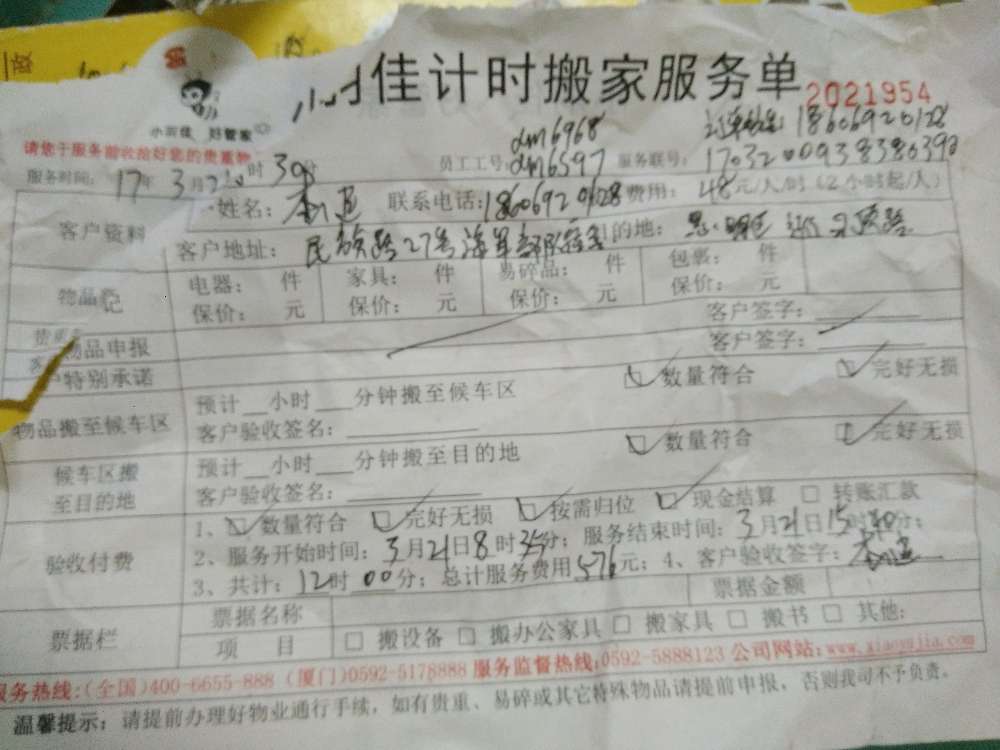 佳计时搬家服务单
2021954
小羽佳 好管家
请您于服务前收拾好您的贵重物
员工工号: dm6968 dm6597 服务联号: 18606920128
1703200938380390
服务时间: 17年 3月21日 时30分
客户资料
姓名: 联系电话: 18606920128 费用: 48元/人/时(2小时起/人)
客户地址: 民族路27号海军部队宿舍 目的地: 思明区
电器: 件 家具: 件 易碎品: 件 包裹: 件
保价: 元 保价: 元 保价: 元 保价: 元
物品申报 客户签字:
客户特别承诺 客户签字:
物品搬至候车区
预计__小时___分钟搬至候车区 数量符合 完好无损
客户验收签名:
候车区搬至目的地
预计__小时___分钟搬至目的地 数量符合 完好无损
客户验收签名:
验收付费
1、数量符合 完好无损 按需归位 现金结算 转账汇款
2、服务开始时间: 3月21日8时35分; 服务结束时间: 3月21日15时40分;
3、共计: 12时00分; 总计服务费用576元; 4、客户验收签字:
票据栏
票据名称 票据金额
项 目 搬设备 搬办公家具 搬家具 搬书 其他:
服务热线:(全国)400-6655-888 (厦门)0592-5178888 服务监督热线:0592-5888123 公司网站:www.xiaoyujia.com
温馨提示: 请提前办理好物业通行手续, 如有贵重、易碎或其它特殊物品请提前申报, 否则我司不予负责。